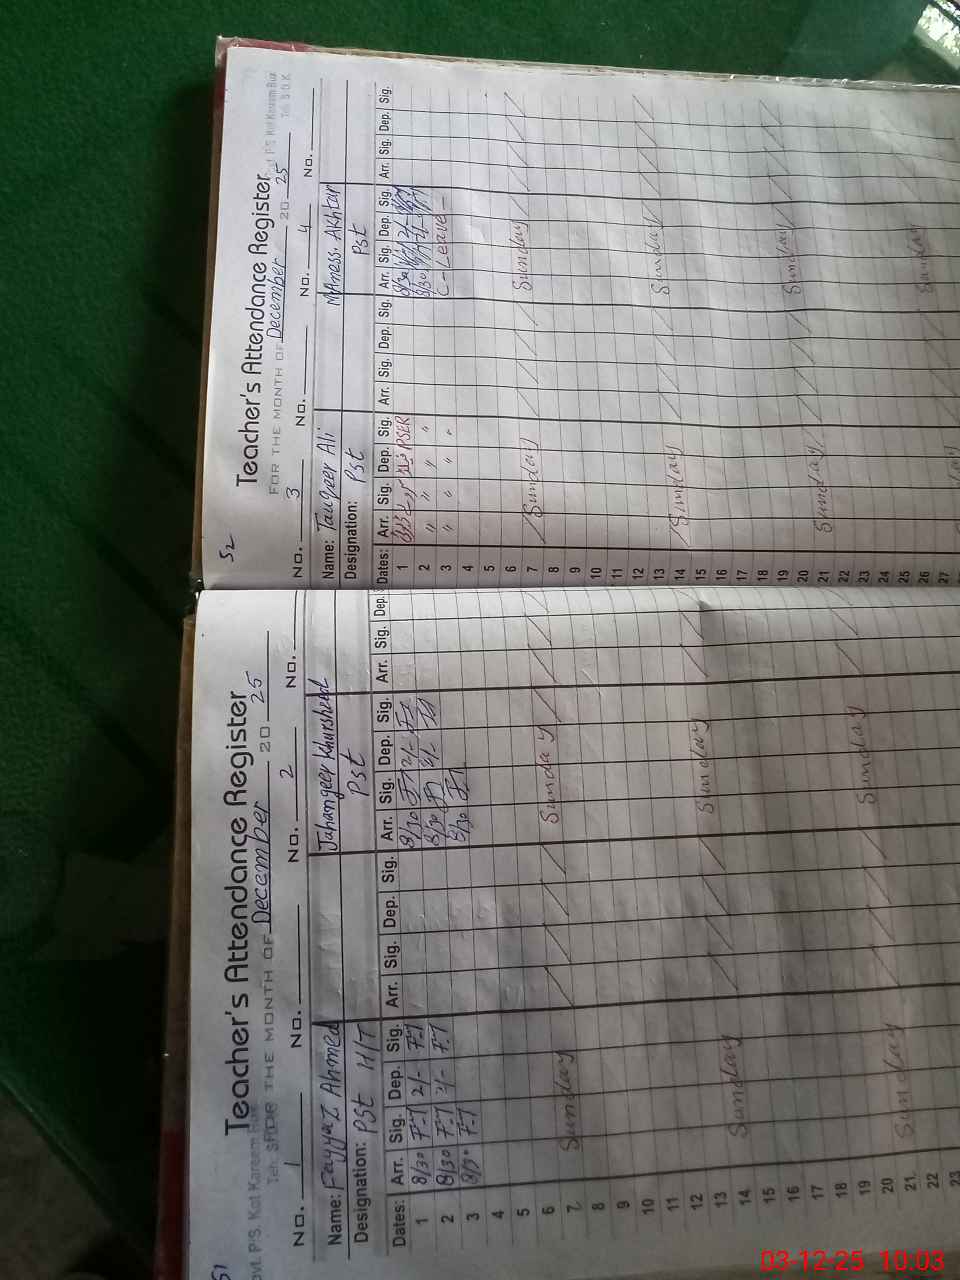 51
ovt. P.S. Kot Kareem Bux
Teacher's Attendance Register
FOR THE MONTH OF December 20 25
No. 1 No. No. 2 No.
Name: Fayyaz Ahmed Jahangeer Khursheed
Designation: PSt H/T Pst
Dates: Arr. Sig. Dep. Sig. Arr. Sig. Dep. Sig. Arr. Sig. Dep. Sig. Arr. Sig. Dep.
1 8/30 2/- 8/30 2/-
2 8/30 2/- 8/30 2/-
3 8/30 8/30
4
5
6
7 Sunday Sunday
8
9
10
11
12
13
14 Sunday Sunday
15
16
17
18
19
20
21 Sunday Sunday
22
23
52
Teacher's Attendance Register
P.S. Kot Kareem Bux
Teh: S.D.K
FOR THE MONTH OF December 20 25
No. 3 No. No. 4 No.
Name: Tauqeer Ali M Aness. Akhtar
Designation: Pst Pst
Dates: Arr. Sig. Dep. Sig. Arr. Sig. Dep. Sig. Arr. Sig. Dep. Sig. Arr. Sig. Dep. Sig.
1 PSER 8/30 2/-
2 " " " " 8/30 2/-
3 " " " " C - Leave -
4
5
6
7 Sunday Sunday
8
9
10
11
12
13
14 Sunday Sunday
15
16
17
18
19
20
21 Sunday Sunday
22
23
24
25
26
27
Sunday
03-12-25 10:03